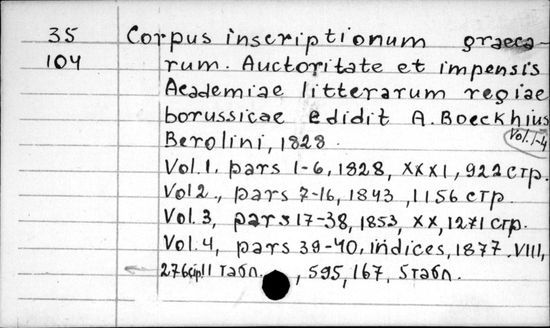 35 Corpus inscriptionum graeca-
104 rum. Auctoritate et impensis
Academiae litterarum regiae
borussicae edidit A. Boeckhius
Berolini, 1828. Vol. 1-4
Vol. 1, pars 1-6, 1828, XXXI, 922 стр.
Vol 2., pars 7-16, 1843, 1156 стр.
Vol. 3, pars 17-38, 1853, XX, 1271 стр.
Vol. 4, pars 39-40, indices, 1877. VIII,
276 стр. 11 табл. , 595, 167, 5 табл.